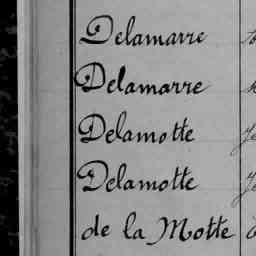 Delamarre
Delamarre
Delamotte
Delamotte
de la Motte